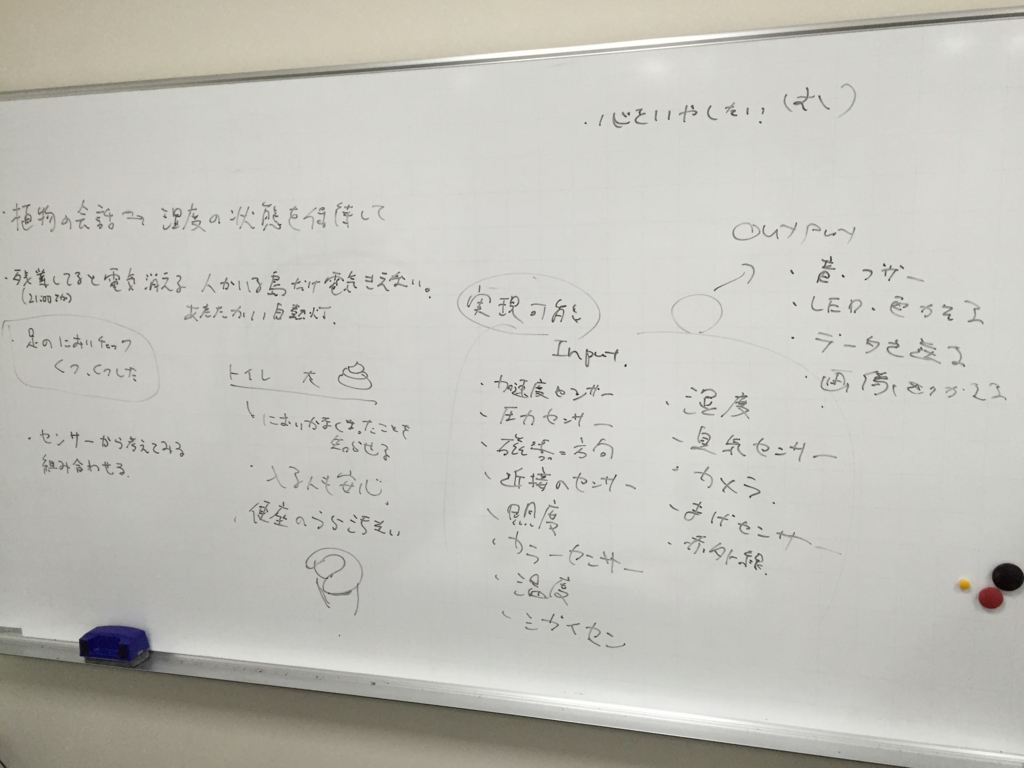 ・心をいやしたい!
・植物の会話→湿度の状態を
・残業してると電気消える 人がいる島だけ電気きえない。
(21:00で)
あたたかい自動灯.
・足のにおいチェック
くつ、くつした
・センサーから考えてみる
組み合わせる.
トイレ 大
においがなくなったことを
知らせる
・入る人も安心.
・便座のうら汚い
実現可能
Input.
・加速度センサー
・圧力センサー
・磁気=方向
・近接のセンサー
・照度
・カラーセンサー
・温度
・シガイセン
・湿度
・臭気センサー
・カメラ.
・まげセンサー
・赤外線.
OUTPUT
・音・ブザー
・LED・色かえる
・データを送る